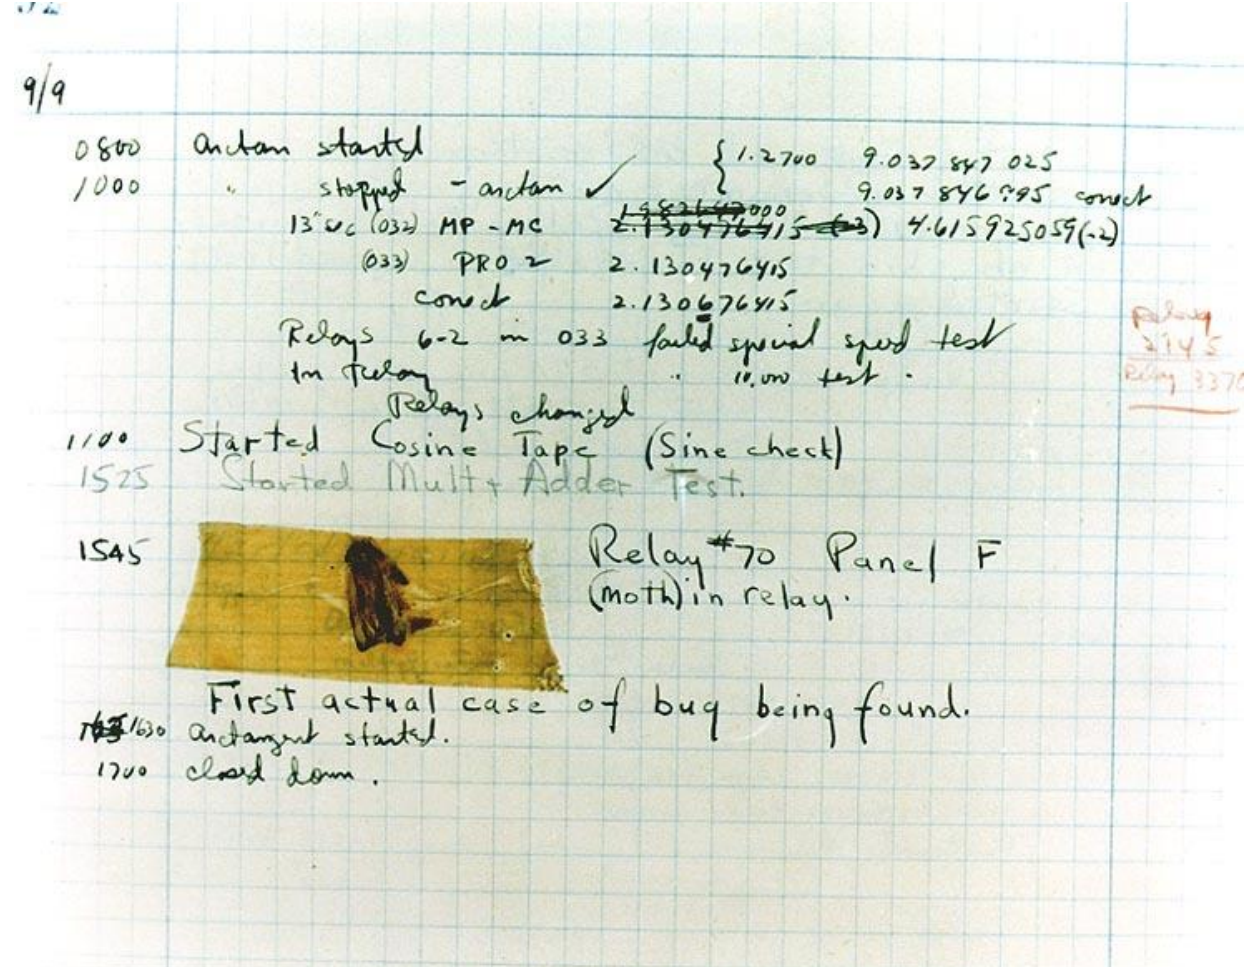 9/9
0800 arctan started { 1.2700 9.037 847 025
1000 " stopped - arctan ✓ 9.037 846 995 correct
13"uc (032) MP - MC 1.982647000
2.130476415 (-3) 4.615925059(-2)
(033) PRO 2 2.130476415
correct 2.130676415
Relays 6-2 in 033 failed special speed test
In Relay " 10,000 test .
Relays changed
Relay
2145
Relay 3370
1100 Started Cosine Tape (Sine check)
1525 Started Mult+ Adder Test.
1545 Relay #70 Panel F
(Moth) in relay.
First actual case of bug being found.
1630 arctangent started.
1700 closed down .